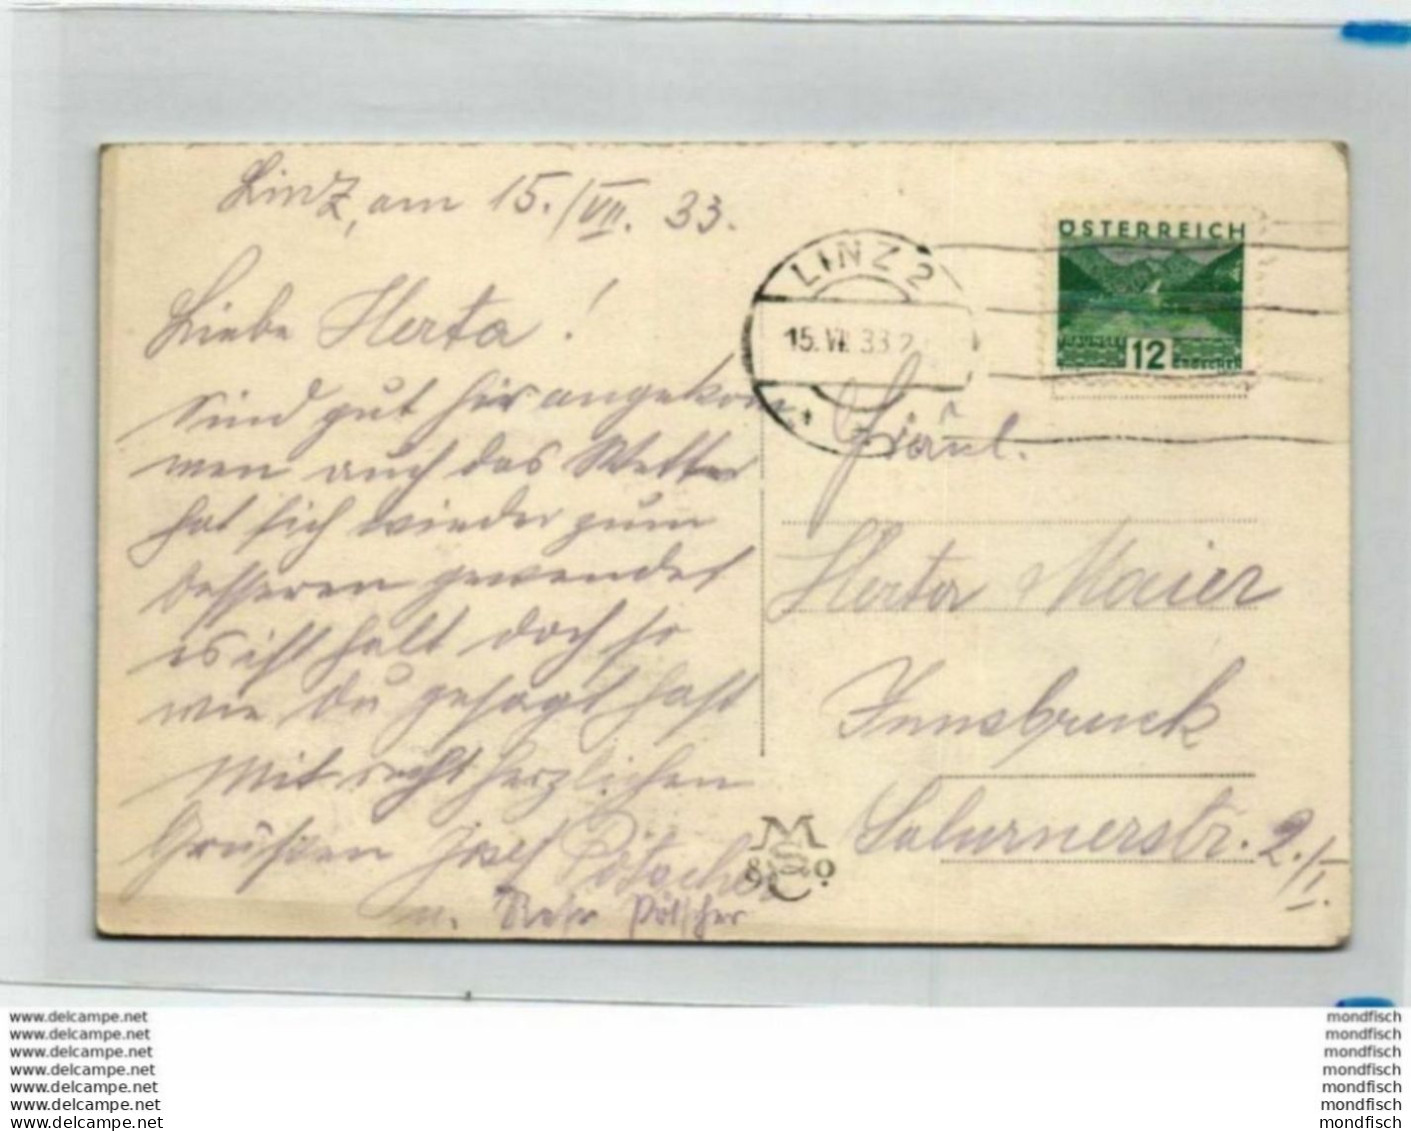 Linz, am 15./VII. 33.
Liebe Herta!
Sind gut hir angekom
men auch das Wetter
hat sich wieder zum
besseren gewendet
es ist halt doch so
wie Du gesagt hast
Mit recht herzlichen
Grüßen Josef Pötscher
u. Pötscher
LINZ 2
15. VII. 33
ÖSTERREICH
12
GROSCHEN
Fräul.
Herta Maier
Innsbruck
Salurnerstr. 2./I.
M
S
& Co
www.delcampe.net
www.delcampe.net
www.delcampe.net
www.delcampe.net
www.delcampe.net
www.delcampe.net
www.delcampe.net
mondfisch
mondfisch
mondfisch
mondfisch
mondfisch
mondfisch
mondfisch